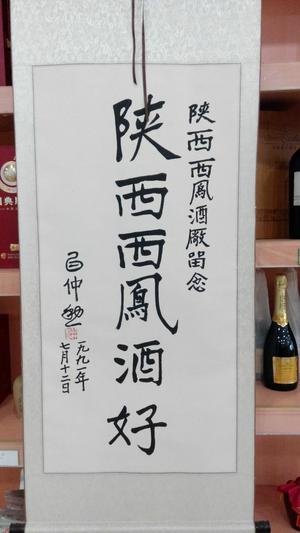 陕西西鳳酒廠留念
陕西西鳳酒好
吕仲勉
一九九一年
七月十二日